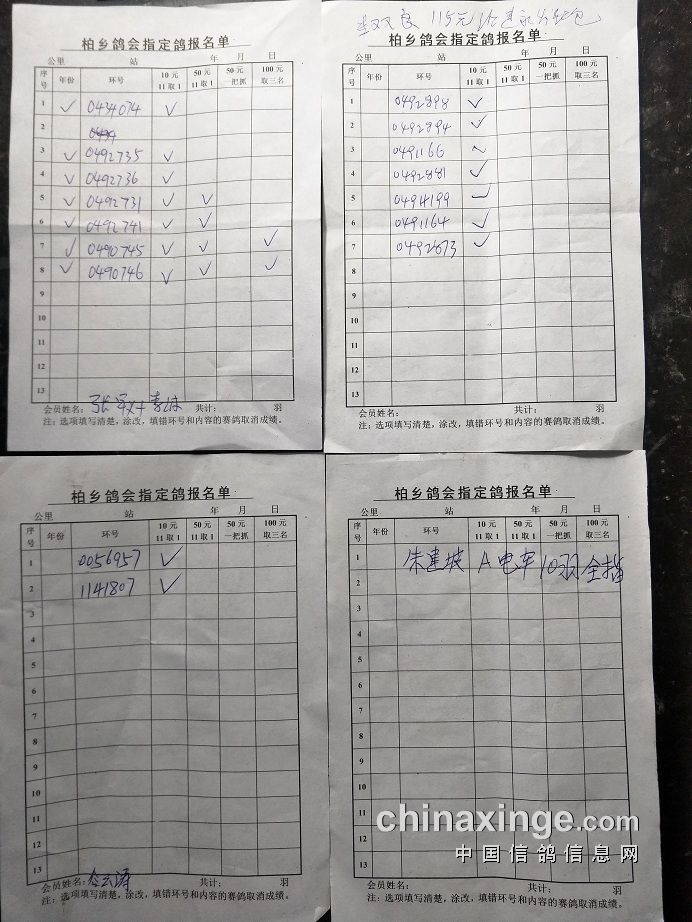 柏乡鸽会指定鸽报名单
公里 站 年 月 日
序号 年份 环号 10元11取1 50元11取1 50元一把抓 100元取三名
1 ✓ 0434074 ✓
2
3 ✓ 0492735 ✓
4 ✓ 0492736 ✓
5 ✓ 0492731 ✓ ✓
6 ✓ 0492741 ✓ ✓
7 ✓ 0490745 ✓ ✓ ✓
8 ✓ 0490746 ✓ ✓ ✓
9
10
11
12
13
会员姓名: 共计: 羽
注:选项填写清楚,涂改,填错环号和内容的赛鸽取消成绩。
双良 115元
柏乡鸽会指定鸽报名单
公里 站 年 月 日
序号 年份 环号 10元11取1 50元11取1 50元一把抓 100元取三名
1 0492898 ✓
2 0492894 ✓
3 0491166 ✓
4 0492881 ✓
5 0494199 ✓
6 0491164 ✓
7 0492673 ✓
8
9
10
11
12
13
会员姓名: 共计: 羽
注:选项填写清楚,涂改,填错环号和内容的赛鸽取消成绩。
柏乡鸽会指定鸽报名单
公里 站 年 月 日
序号 年份 环号 10元11取1 50元11取1 50元一把抓 100元取三名
1 0056957 ✓
2 1141807 ✓
3
4
5
6
7
8
9
10
11
12
13
会员姓名: 共计: 羽
注:选项填写清楚,涂改,填错环号和内容的赛鸽取消成绩。
柏乡鸽会指定鸽报名单
公里 站 年 月 日
序号 年份 环号 10元11取1 50元11取1 50元一把抓 100元取三名
1 朱建坡 A电车 10羽 全指
2
3
4
5
6
7
8
9
10
11
12
13
会员姓名: 共计: 羽
注:选项填写清楚,涂改,填错环号和内容的赛鸽取消成绩。
chinaxinge.com
中国信鸽信息网